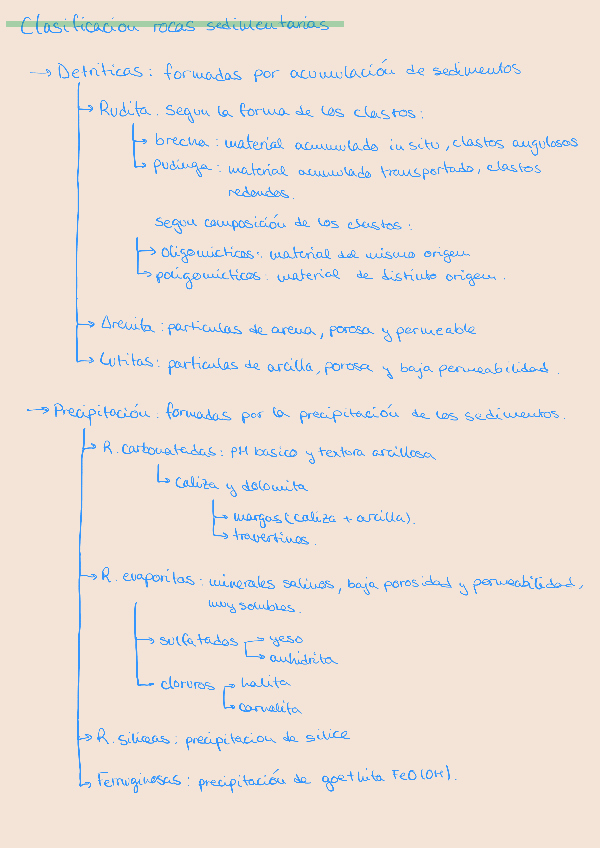 Clasificacion rocas sedimentarias
→ Detríticas: formadas por acumulación de sedimentos
→ Rudita. Segun la forma de los clastos:
→ brecha: material acumulado in situ, clastos angulosos
→ pudinga: material acumulado transportado, clastos
redondos.
segun composición de los clastos:
→ oligomicticos: material del mismo origen
→ poligomicticos: material de distinto origen.
→ Arenita: particulas de arena, porosa y permeable
→ Lutitas: particulas de arcilla, porosa y baja permeabilidad.
→ Precipitación: formadas por la precipitación de los sedimentos.
→ R. carbonatadas: PH basico y textura arcillosa
→ caliza y dolomita
→ margas (caliza + arcilla).
→ travertinos.
→ R. evaporitas: minerales salinos, baja porosidad y permeabilidad,
muy solubles.
→ sulfatados → yeso
→ anhidrita
→ cloruros → halita
→ carnalita
→ R. siliceas: precipitacion de silice
→ Ferruginosas: precipitación de goethita FeO(OH).